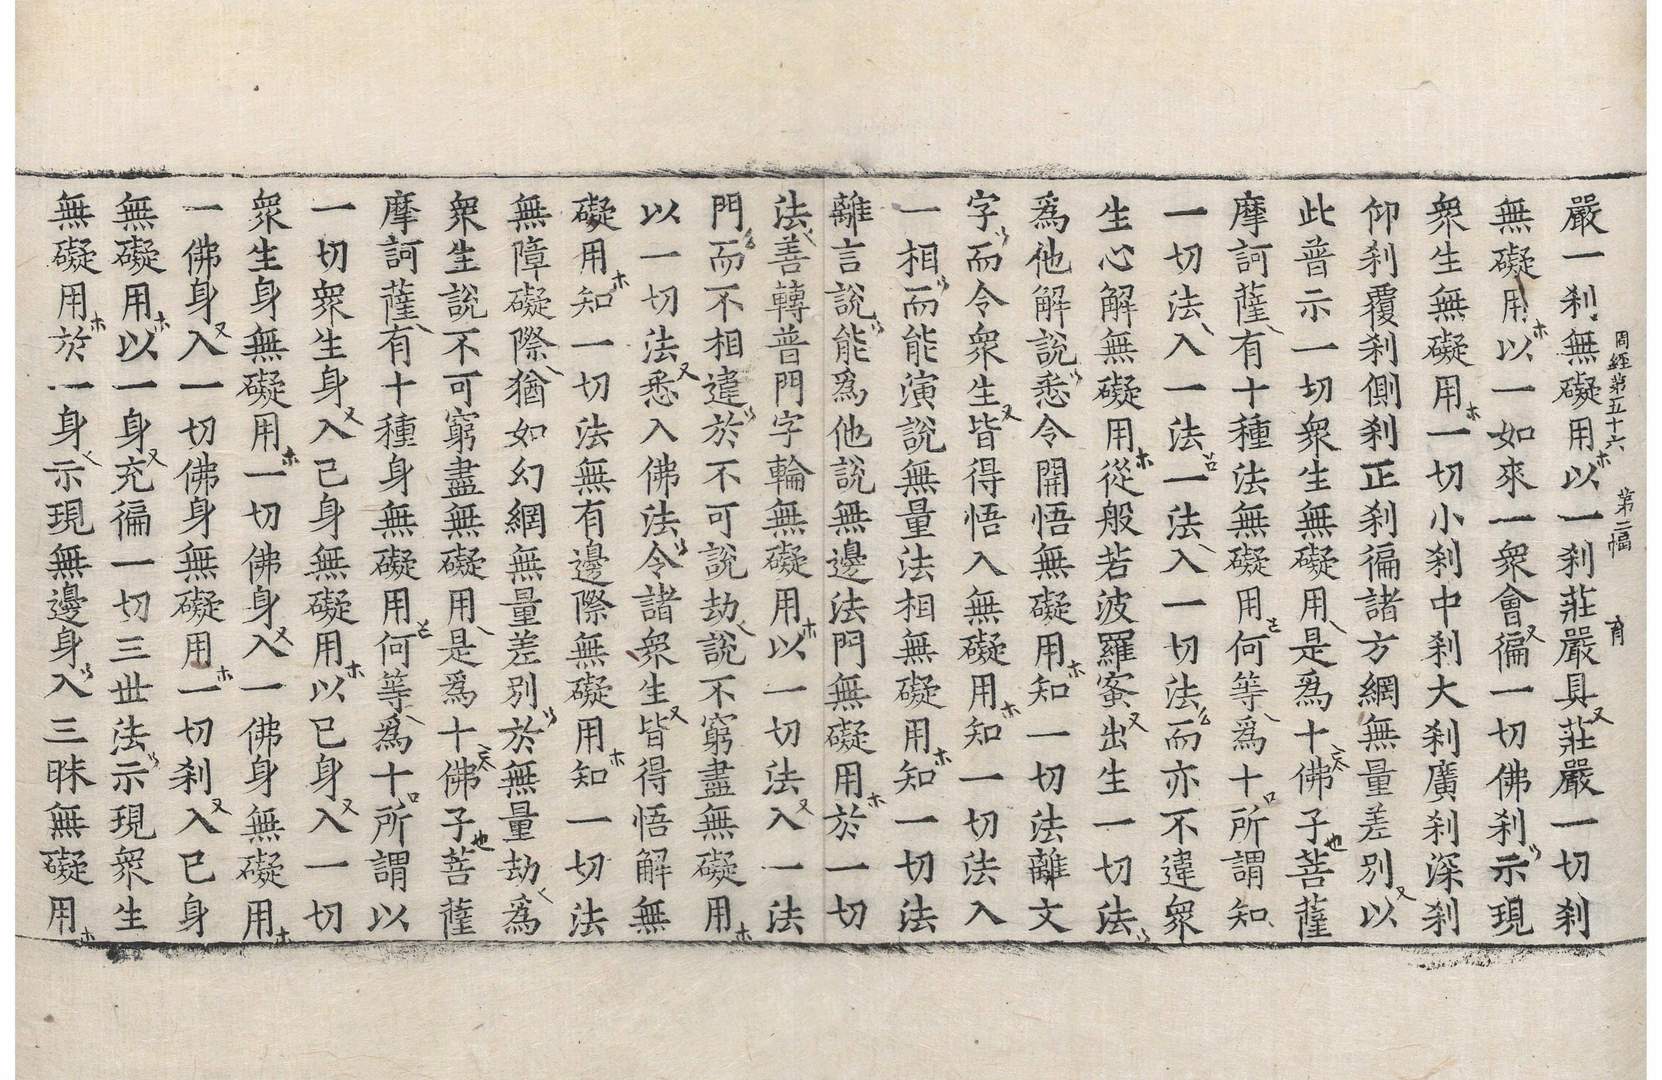 周經第五十六 第二幅 育
嚴一刹無礙用以一刹莊嚴具莊嚴一切刹
無礙用以一如來一衆會徧一切佛刹示現
衆生無礙用一切小刹中刹大刹廣刹深刹
仰刹覆刹側刹正刹徧諸方網無量差別以
此普示一切衆生無礙用是爲十佛子菩薩
摩訶薩有十種法無礙用何等爲十所謂知
一切法入一法一法入一切法而亦不違衆
生心解無礙用從般若波羅蜜出生一切法
爲他解說悉令開悟無礙用知一切法離文
字而令衆生皆得悟入無礙用知一切法入
一相而能演說無量法相無礙用知一切法
離言說能爲他說無邊法門無礙用於一切
法善轉普門字輪無礙用以一切法入一法
門而不相違於不可說劫說不窮盡無礙用
以一切法悉入佛法令諸衆生皆得悟解無
礙用知一切法無有邊際無礙用知一切法
無障礙際猶如幻網無量差別於無量劫爲
衆生說不可窮盡無礙用是爲十佛子菩薩
摩訶薩有十種身無礙用何等爲十所謂以
一切衆生身入己身無礙用以己身入一切
衆生身無礙用一切佛身入一佛身無礙用
一佛身入一切佛身無礙用一切刹入己身
無礙用以一身充徧一切三世法示現衆生
無礙用於一身示現無邊身入三昧無礙用